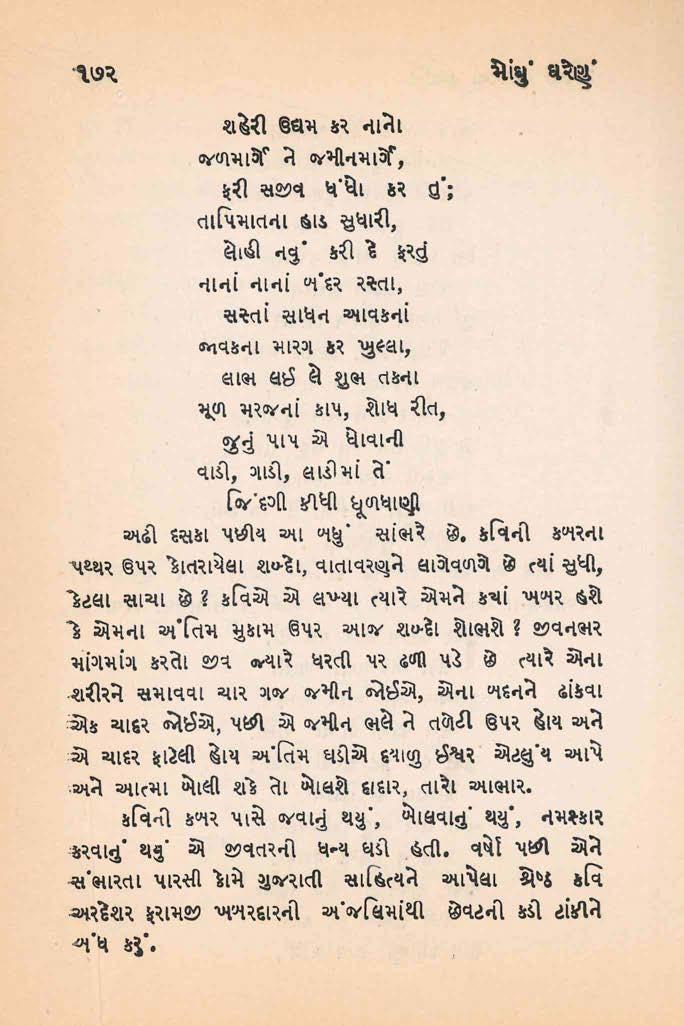 ૧૭૨ મોંઘું ઘરેણું
શહેરી ઉદ્યમ કર નાનો
જળમાર્ગે ને જમીનમાર્ગે,
ફરી સજીવ ધંધો કર તું;
તાપિમાતના હાડ સુધારી,
લોહી નવું કરી દે ફરતું
નાનાં નાનાં બંદર રસ્તા,
સસ્તાં સાધન આવકનાં
જાવકના મારગ કર ખુલ્લા,
લાભ લઈ લે શુભ તકના
મૂળ મરજનાં કાપ, શોધ રીત,
જુનું પાપ એ ધોવાની
વાડી, ગાડી, લાડીમાં તેં
જિંદગી કીધી ધૂળધાણી
અઢી દસકા પછીય આ બધું સાંભરે છે. કવિની કબરના
પથ્થર ઉપર કોતરાયેલા શબ્દો, વાતાવરણને લાગેવળગે છે ત્યાં સુધી,
કેટલા સાચા છે ? કવિએ એ લખ્યા ત્યારે એમને ક્યાં ખબર હશે
કે એમના અંતિમ મુકામ ઉપર આજ શબ્દો શોભશે ? જીવનભર
માંગમાંગ કરતો જીવ જ્યારે ધરતી પર ઢળી પડે છે ત્યારે એના
શરીરને સમાવવા ચાર ગજ જમીન જોઈએ, એના બદનને ઢાંકવા
એક ચાદર જોઈએ, પછી એ જમીન ભલે ને તળેટી ઉપર હોય અને
એ ચાદર ફાટેલી હોય અંતિમ ઘડીએ દયાળુ ઈશ્વર એટલુંય આપે
અને આત્મા બોલી શકે તો બોલશે દાદાર, તારો આભાર.
કવિની કબર પાસે જવાનું થયું, બોલવાનું થયું, નમસ્કાર
કરવાનું થયું એ જીવતરની ધન્ય ઘડી હતી. વર્ષો પછી એને
સંભારતા પારસી કોમે ગુજરાતી સાહિત્યને આપેલા શ્રેષ્ઠ કવિ
અરદેશર ફરામજી ખબરદારની અંજલિમાંથી છેવટની કડી ટાંકીને
બંધ કરું.